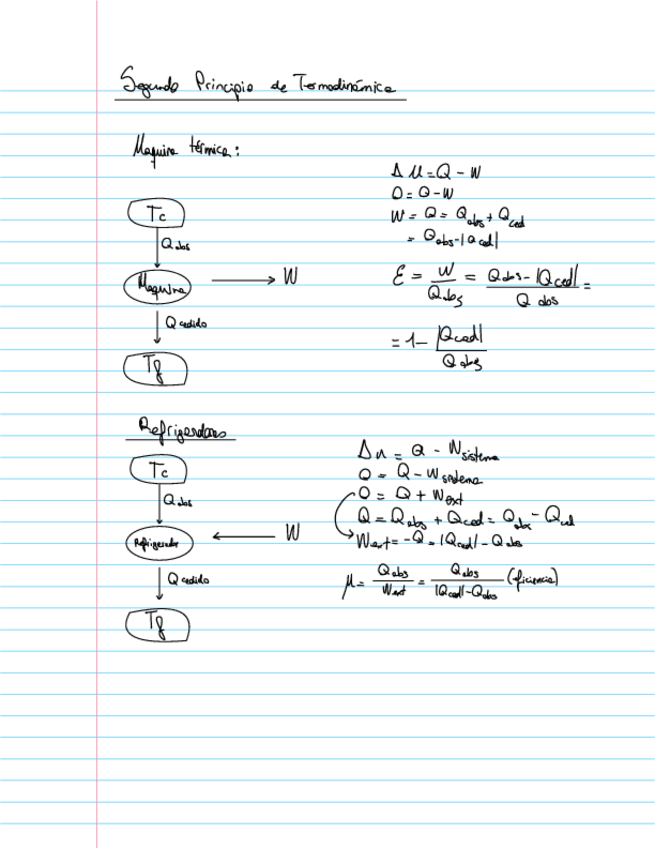 Segundo Principio de Termodinámica
Maquina térmica:
Tc
Q abs
Maquina → W
Q cedido
Tf
Δu = Q - W
0 = Q - W
W = Q = Qabs + Qced
= Qabs - |Qced|
ε = W/Qabs = (Qabs - |Qced|)/Qabs =
= 1 - |Qced|/Qabs
Refrigeradores
Tc
Q abs
Refrigerador ← W
Q cedido
Tf
Δu = Q - Wsistema
0 = Q - Wsistema
0 = Q + Wext
Q = Qabs + Qced = Qabs - Qced
Wext = -Q = |Qced| - Qabs
μ = Qabs/Wext = Qabs/(|Qced| - Qabs) (eficiencia)